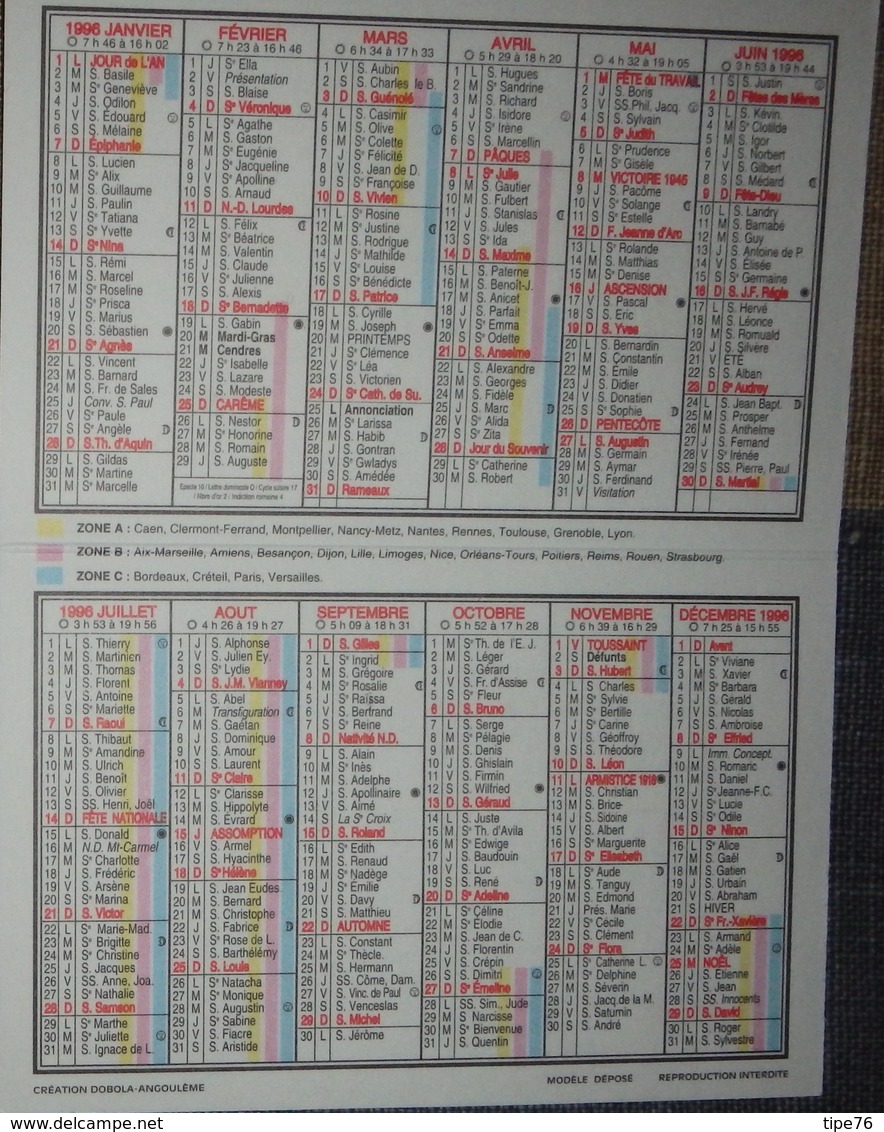 1996 JANVIER
7 h 46 à 16 h 02
1 L JOUR de L'AN
2 M S. Basile
3 M Sᵉ Geneviève
4 J S. Odilon
5 V S. Édouard
6 S S. Mélaine
7 D Épiphanie
8 L S. Lucien
9 M Sᵉ Alix
10 M S. Guillaume
11 J S. Paulin
12 V Sᵉ Tatiana
13 S Sᵉ Yvette
14 D Sᵉ Nina
15 L S. Rémi
16 M S. Marcel
17 M Sᵉ Roseline
18 J Sᵉ Prisca
19 V S. Marius
20 S S. Sébastien
21 D Sᵉ Agnès
22 L S. Vincent
23 M S. Barnard
24 M S. Fr. de Sales
25 J Conv. S. Paul
26 V Sᵉ Paule
27 S Sᵉ Angèle
28 D S.Th. d'Aquin
29 L S. Gildas
30 M Sᵉ Martine
31 M Sᵉ Marcelle
FÉVRIER
7 h 23 à 16 h 46
1 J Sᵉ Ella
2 V Présentation
3 S S. Blaise
4 D Sᵉ Véronique
5 L Sᵉ Agathe
6 M S. Gaston
7 M Sᵉ Eugénie
8 J Sᵉ Jacqueline
9 V Sᵉ Apolline
10 S S. Arnaud
11 D N.-D. Lourdes
12 L S. Félix
13 M Sᵉ Béatrice
14 M S. Valentin
15 J S. Claude
16 V Sᵉ Julienne
17 S S. Alexis
18 D Sᵉ Bernadette
19 L S. Gabin
20 M Mardi-Gras
21 M Cendres
22 J Sᵉ Isabelle
23 V S. Lazare
24 S S. Modeste
25 D CARÊME
26 L S. Nestor
27 M Sᵉ Honorine
28 M S. Romain
29 J S. Auguste
Epacte 10 / Lettre dominicale G / Cycle solaire 17
/ Nbre d'or 2 / Indiction romaine 4
MARS
6 h 34 à 17 h 33
1 V S. Aubin
2 S S. Charles le B.
3 D S. Guénolé
4 L S. Casimir
5 M S. Olive
6 M Sᵉ Colette
7 J Sᵉ Félicité
8 V S. Jean de D.
9 S Sᵉ Françoise
10 D S. Vivien
11 L Sᵉ Rosine
12 M Sᵉ Justine
13 M S. Rodrigue
14 J Sᵉ Mathilde
15 V Sᵉ Louise
16 S Sᵉ Bénédicte
17 D S. Patrice
18 L S. Cyrille
19 M S. Joseph
20 M PRINTEMPS
21 J Sᵉ Clémence
22 V Sᵉ Léa
23 S S. Victorien
24 D Sᵉ Cath. de Su.
25 L Annonciation
26 M Sᵉ Larissa
27 M S. Habib
28 J S. Gontran
29 V Sᵉ Gwladys
30 S S. Amédée
31 D Rameaux
AVRIL
5 h 29 à 18 h 20
1 L S. Hugues
2 M Sᵉ Sandrine
3 M S. Richard
4 J S. Isidore
5 V Sᵉ Irène
6 S S. Marcellin
7 D PÂQUES
8 L Sᵉ Julie
9 M S. Gautier
10 M S. Fulbert
11 J S. Stanislas
12 V S. Jules
13 S Sᵉ Ida
14 D S. Maxime
15 L S. Paterne
16 M S. Benoît-J.
17 M S. Anicet
18 J S. Parfait
19 V Sᵉ Emma
20 S Sᵉ Odette
21 D S. Anselme
22 L S. Alexandre
23 M S. Georges
24 M S. Fidèle
25 J S. Marc
26 V Sᵉ Alida
27 S Sᵉ Zita
28 D Jour du Souvenir
29 L Sᵉ Catherine
30 M S. Robert
MAI
4 h 32 à 19 h 05
1 M FÊTE du TRAVAIL
2 J S. Boris
3 V SS.Phil. Jacq.
4 S S. Sylvain
5 D Sᵉ Judith
6 L Sᵉ Prudence
7 M Sᵉ Gisèle
8 M VICTOIRE 1945
9 J S. Pacôme
10 V Sᵉ Solange
11 S Sᵉ Estelle
12 D F. Jeanne d'Arc
13 L Sᵉ Rolande
14 M S. Matthias
15 M Sᵉ Denise
16 J ASCENSION
17 V S. Pascal
18 S S. Eric
19 D S. Yves
20 L S. Bernardin
21 M S. Constantin
22 M S. Émile
23 J S. Didier
24 V S. Donatien
25 S Sᵉ Sophie
26 D PENTECÔTE
27 L S. Augustin
28 M S. Germain
29 M S. Aymar
30 J S. Ferdinand
31 V Visitation
JUIN 1996
3 h 53 à 19 h 44
1 S S. Justin
2 D Fêtes des Mères
3 L S. Kévin
4 M Sᵉ Clotilde
5 M S. Igor
6 J S. Norbert
7 V S. Gilbert
8 S S. Médard
9 D Fête-Dieu
10 L S. Landry
11 M S. Barnabé
12 M S. Guy
13 J S. Antoine de P.
14 V S. Élisée
15 S Sᵉ Germaine
16 D S. J.F. Régis
17 L S. Hervé
18 M S. Léonce
19 M S. Romuald
20 J S. Silvère
21 V ÉTÉ
22 S S. Alban
23 D Sᵉ Audrey
24 L S. Jean Bapt.
25 M S. Prosper
26 M S. Anthelme
27 J S. Fernand
28 V Sᵉ Irénée
29 S SS. Pierre, Paul
30 D S. Martial
ZONE A : Caen, Clermont-Ferrand, Montpellier, Nancy-Metz, Nantes, Rennes, Toulouse, Grenoble, Lyon.
ZONE B : Aix-Marseille, Amiens, Besançon, Dijon, Lille, Limoges, Nice, Orléans-Tours, Poitiers, Reims, Rouen, Strasbourg.
ZONE C : Bordeaux, Créteil, Paris, Versailles.
1996 JUILLET
3 h 53 à 19 h 56
1 L S. Thierry
2 M S. Martinien
3 M S. Thomas
4 J S. Florent
5 V S. Antoine
6 S Sᵉ Mariette
7 D S. Raoul
8 L S. Thibaut
9 M Sᵉ Amandine
10 M S. Ulrich
11 J S. Benoît
12 V S. Olivier
13 S SS. Henri, Joël
14 D FÊTE NATIONALE
15 L S. Donald
16 M N.D. Mt-Carmel
17 M Sᵉ Charlotte
18 J S. Frédéric
19 V S. Arsène
20 S Sᵉ Marina
21 D S. Victor
22 L Sᵉ Marie-Mad.
23 M Sᵉ Brigitte
24 M Sᵉ Christine
25 J S. Jacques
26 V SS. Anne, Joa.
27 S Sᵉ Nathalie
28 D S. Samson
29 L Sᵉ Marthe
30 M Sᵉ Juliette
31 M S. Ignace de L.
AOUT
4 h 26 à 19 h 27
1 J S. Alphonse
2 V S. Julien Ey.
3 S Sᵉ Lydie
4 D S. J.M. Vianney
5 L S. Abel
6 M Transfiguration
7 M S. Gaétan
8 J S. Dominique
9 V S. Amour
10 S S. Laurent
11 D Sᵉ Claire
12 L Sᵉ Clarisse
13 M S. Hippolyte
14 M S. Evrard
15 J ASSOMPTION
16 V S. Armel
17 S S. Hyacinthe
18 D Sᵉ Hélène
19 L S. Jean Eudes
20 M S. Bernard
21 M S. Christophe
22 J S. Fabrice
23 V Sᵉ Rose de L.
24 S S. Barthélémy
25 D S. Louis
26 L Sᵉ Natacha
27 M Sᵉ Monique
28 M S. Augustin
29 J Sᵉ Sabine
30 V S. Fiacre
31 S S. Aristide
SEPTEMBRE
5 h 09 à 18 h 31
1 D S. Gilles
2 L Sᵉ Ingrid
3 M S. Grégoire
4 M Sᵉ Rosalie
5 J Sᵉ Raïssa
6 V S. Bertrand
7 S Sᵉ Reine
8 D Nativité N.D.
9 L S. Alain
10 M Sᵉ Inès
11 M S. Adelphe
12 J S. Apollinaire
13 V S. Aimé
14 S La Sᵉ Croix
15 D S. Roland
16 L Sᵉ Edith
17 M S. Renaud
18 M Sᵉ Nadège
19 J Sᵉ Émilie
20 V S. Davy
21 S S. Matthieu
22 D AUTOMNE
23 L S. Constant
24 M Sᵉ Thècle
25 M S. Hermann
26 J SS. Côme, Dam.
27 V S. Vinc. de Paul
28 S S. Venceslas
29 D S. Michel
30 L S. Jérôme
OCTOBRE
5 h 52 à 17 h 28
1 M Sᵉ Th. de l'E. J.
2 M S. Léger
3 J S. Gérard
4 V S. Fr. d'Assise
5 S Sᵉ Fleur
6 D S. Bruno
7 L S. Serge
8 M Sᵉ Pélagie
9 M S. Denis
10 J S. Ghislain
11 V S. Firmin
12 S S. Wilfried
13 D S. Géraud
14 L S. Juste
15 M Sᵉ Th. d'Avila
16 M Sᵉ Edwige
17 J S. Baudouin
18 V S. Luc
19 S S. René
20 D Sᵉ Adeline
21 L Sᵉ Céline
22 M Sᵉ Élodie
23 M S. Jean de C.
24 J S. Florentin
25 V S. Crépin
26 S S. Dimitri
27 D Sᵉ Émeline
28 L SS. Sim., Jude
29 M S. Narcisse
30 M Sᵉ Bienvenue
31 J S. Quentin
NOVEMBRE
6 h 39 à 16 h 29
1 V TOUSSAINT
2 S Défunts
3 D S. Hubert
4 L S. Charles
5 M Sᵉ Sylvie
6 M Sᵉ Bertille
7 J Sᵉ Carine
8 V S. Géoffroy
9 S S. Théodore
10 D S. Léon
11 L ARMISTICE 1918
12 M S. Christian
13 M S. Brice
14 J S. Sidoine
15 V S. Albert
16 S Sᵉ Marguerite
17 D Sᵉ Elisabeth
18 L Sᵉ Aude
19 M S. Tanguy
20 M S. Edmond
21 J Prés. Marie
22 V Sᵉ Cécile
23 S S. Clément
24 D Sᵉ Flora
25 L Sᵉ Catherine L.
26 M Sᵉ Delphine
27 M S. Séverin
28 J S. Jacq.de la M.
29 V S. Saturnin
30 S S. André
DÉCEMBRE 1996
7 h 25 à 15 h 55
1 D Avent
2 L Sᵉ Viviane
3 M S. Xavier
4 M Sᵉ Barbara
5 J S. Gérald
6 V S. Nicolas
7 S S. Ambroise
8 D Sᵉ Elfried
9 L Imm. Concept.
10 M S. Romaric
11 M S. Daniel
12 J Sᵉ Jeanne-F.C.
13 V Sᵉ Lucie
14 S Sᵉ Odile
15 D Sᵉ Ninon
16 L Sᵉ Alice
17 M S. Gaël
18 M S. Gatien
19 J S. Urbain
20 V S. Abraham
21 S HIVER
22 D Sᵉ Fr.-Xavière
23 L S. Armand
24 M Sᵉ Adèle
25 M NOËL
26 J S. Etienne
27 V S. Jean
28 S SS. Innocents
29 D S. David
30 L S. Roger
31 M S. Sylvestre
CRÉATION DOBOLA-ANGOULÊME
MODÈLE DÉPOSÉ REPRODUCTION INTERDITE
tipe76